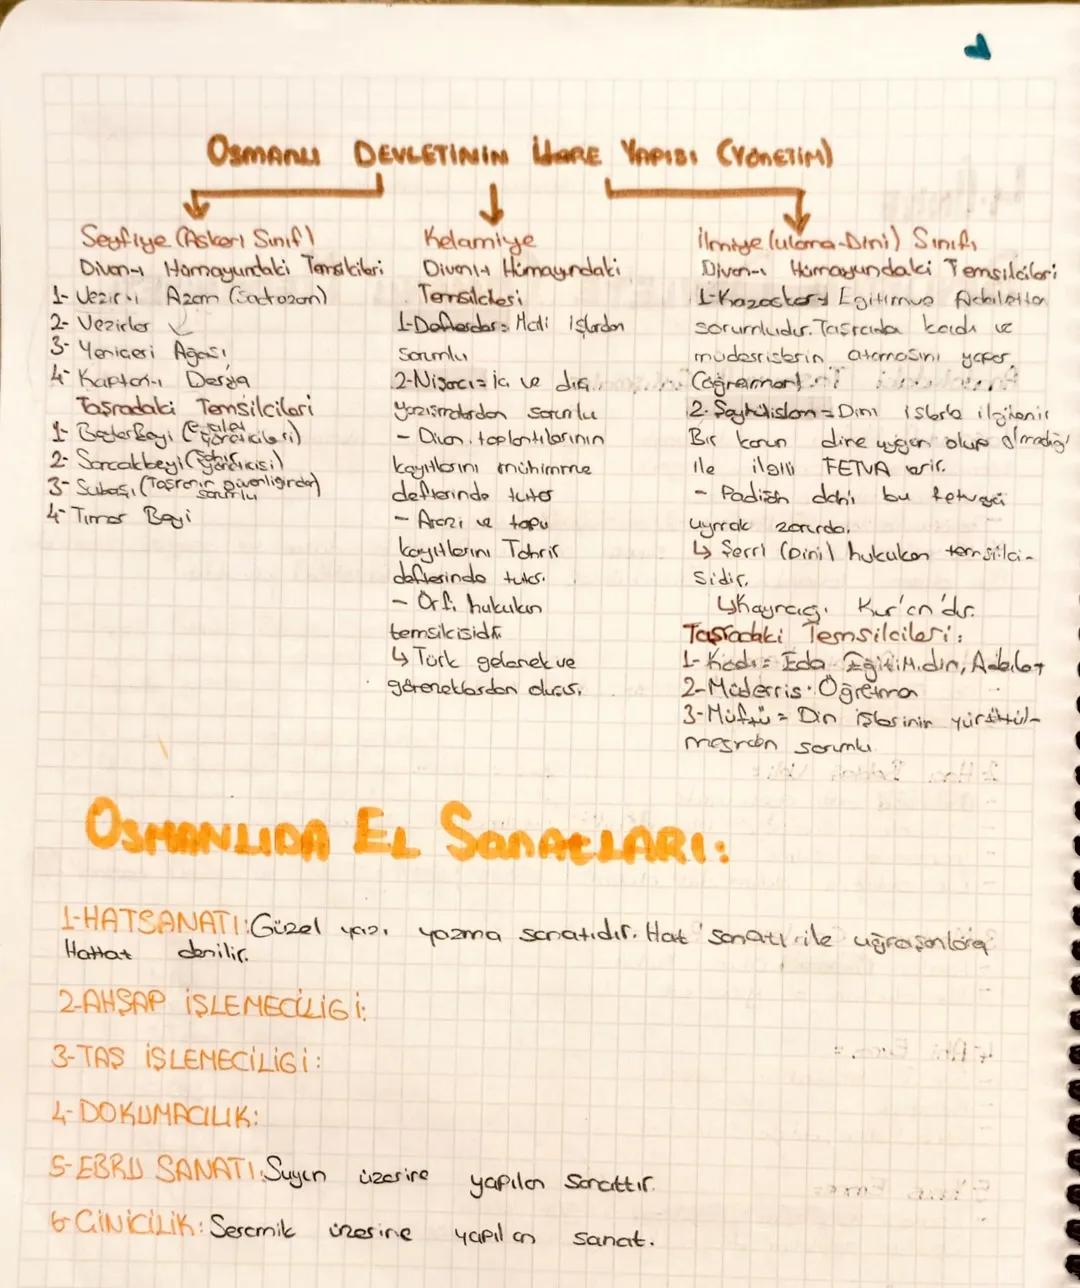 OSMANLI DEVLETİNİN İDARE YAPISI (YÖNETİM)
Seyfiye (Askeri Sınıf)
Divan-ı Hümayundaki Temsilcileri
1- Vezir-i Azam (Sadrazam)
2- Vezirler
3- Yeniçeri Ağası
4- Kaptan-ı Derya
Taşradaki Temsilcileri
1- Beylerbeyi (Eyalet yöneticileri)
2- Sancakbeyi (Şehir yöneticisi)
3- Subaşı (Taşranın güvenliğinden sorumlu
4- Tımar Beyi
Kelamiye
Divanı Hümayundaki
Temsilcilesi
1-Defterdar= Mali işlerden
sorumlu
2-Nişancı= İç ve dış
yazışmalardan sorumlu
- Divan toplantılarının
kayıtlarını mühimme
defterinde tutar
- Arazi ve tapu
kayıtlarını Tahrir
defterinde tutar.
- Örfi hukukun
temsilcisidir
↳ Türk gelenek ve
göreneklerden oluşur.
İlmiye (ulema-Dini) Sınıfı
Divan-ı Hümayundaki Temsilcileri
1-Kazasker= Eğitim ve Adaletten
sorumludur. Taşrada kadı ve
müderrislerin atamasını yapar
(öğretmen)
2. Şeyhülislam= Dini işlerle ilgilenir
Bir kanun dine uygun olup olmadığı
ile ilgili FETVA verir.
- Padişah dahi bu fetvaya
uymak zorunda.
↳ Şerri (Dini) hukukun temsilci-
sidir.
↳Kaynağı Kur'an'dır.
Taşradaki Temsilcileri:
1- Kadı= Eğitimdin, Adalet
2-Müderris. Öğretmen
3-Müftü= Din işlerinin yürütül-
mesinden sorumlu
OSMANLIDA EL SANATLARI:
1-HATSANATI:Güzel yazı yazma sanatıdır. Hat sanatı ile uğraşanlara
Hattat denilir.
2-AHŞAP İŞLEMECİLİGİ:
3-TAŞ İŞLEMECİLİGİ:
4-DOKUMACILIK:
5-EBRU SANATI:Suyun üzerine yapılan sanattır.
6-ÇİNİCİLİK: Seramik üzerine yapılan sanat.